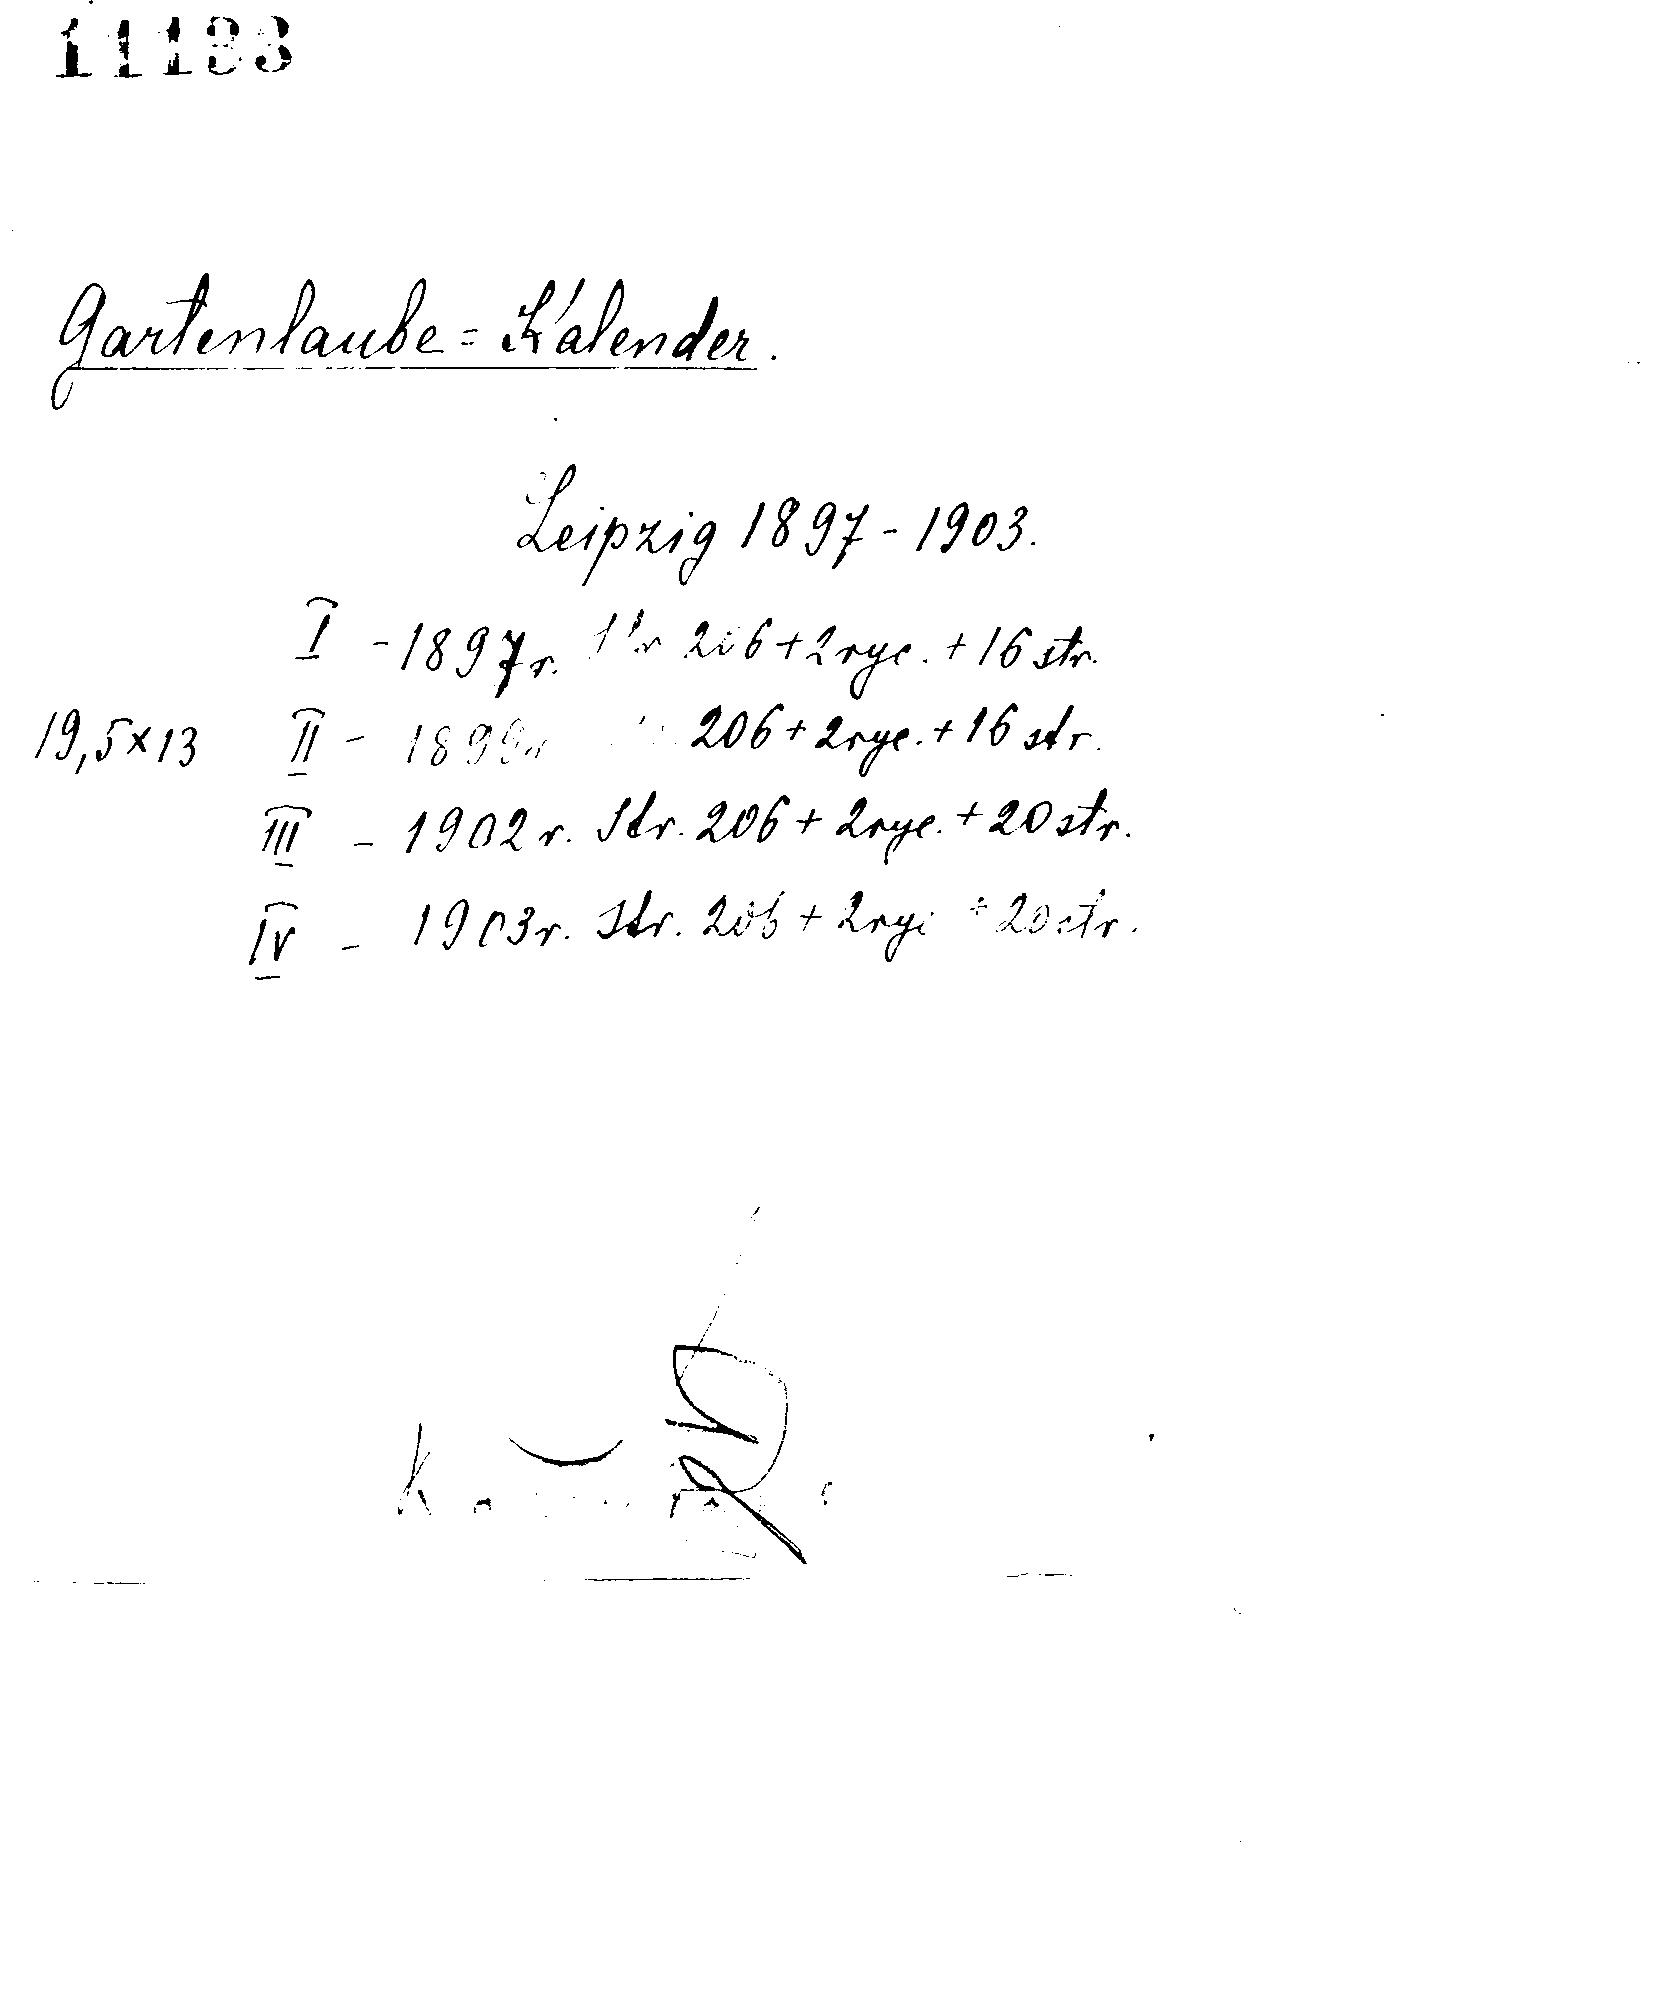 11183
Gartenlaube = Kalender.
Leipzig 1897 - 1903.
I - 1897 r. str 206 + 2 ryc. + 16 str.
19,5 x 13 II - 1899 r 206 + 2 ryc. + 16 str.
III - 1902 r. str. 206 + 2 ryc. + 20 str.
IV - 1903 r. str. 206 + 2 ryc + 20 str.